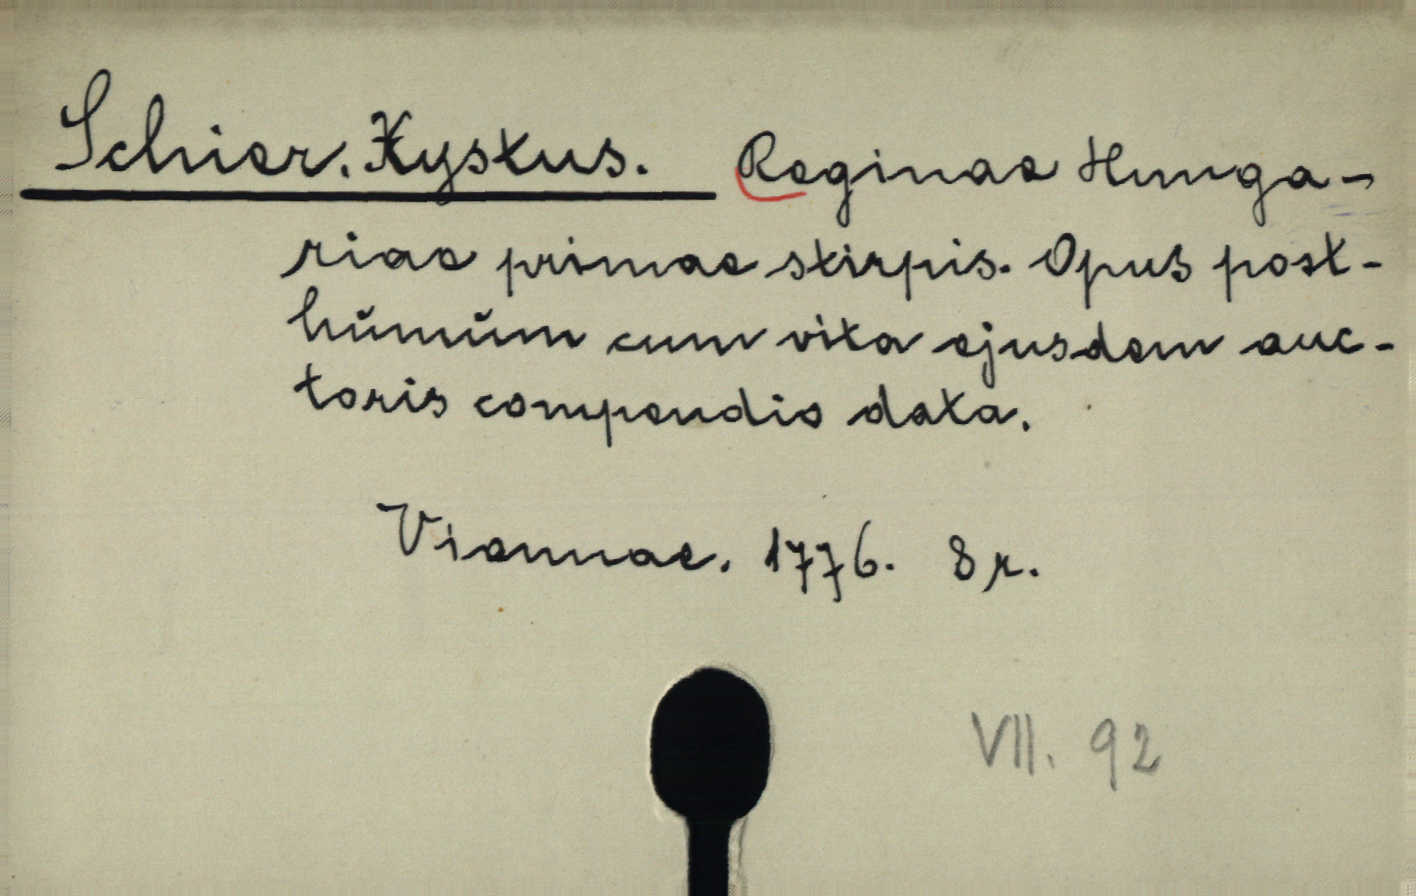 Schier. Xystus. Reginae Hunga-
riae primae stirpis. Opus post-
hŭmŭm cum vita ejusdem auc-
toris compendio data.
Viennae. 1776. 8 r.
VII. 92